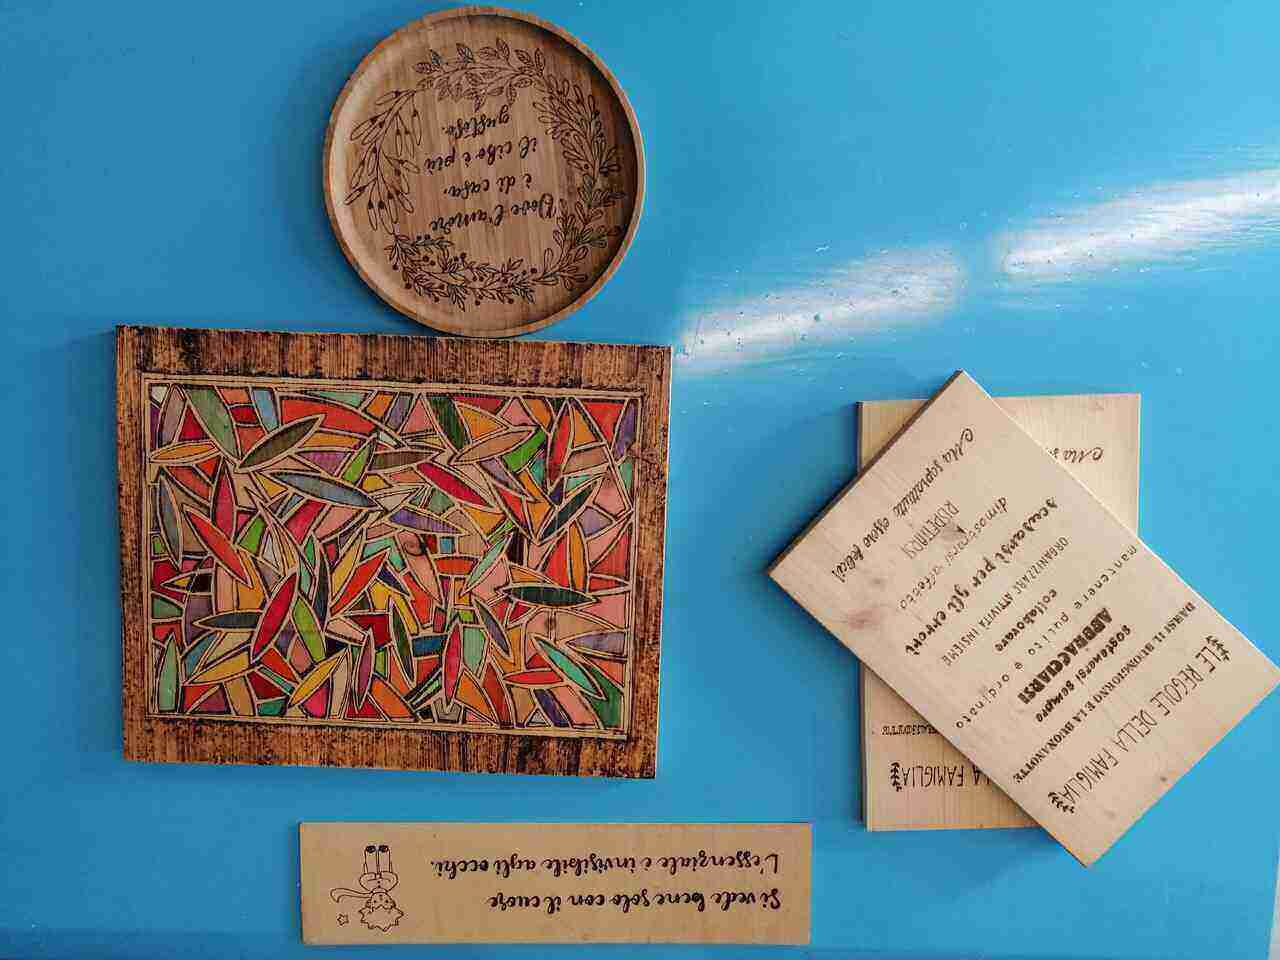 Dove l'amore
è di casa,
il cibo è più
gustoso.
LE REGOLE DELLA FAMIGLIA
DARSI IL BUONGIORNO E LA BUONANOTTE
sostenersi sempre
ABBRACCIARSI
mantenere pulito e ordinato
collaborare
ORGANIZZARE ATTIVITÀ INSIEME
scusarsi per gli errori
dimostrarsi affetto
RISPETTARSI
Ma soprattutto essere felici
LA FAMIGLIA
Ma
Si vede bene solo con il cuore
L'essenziale è invisibile agli occhi.